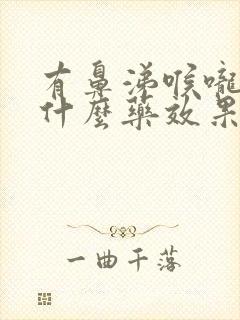 有鼻涕喉嚨
什麼藥效果
一曲千落